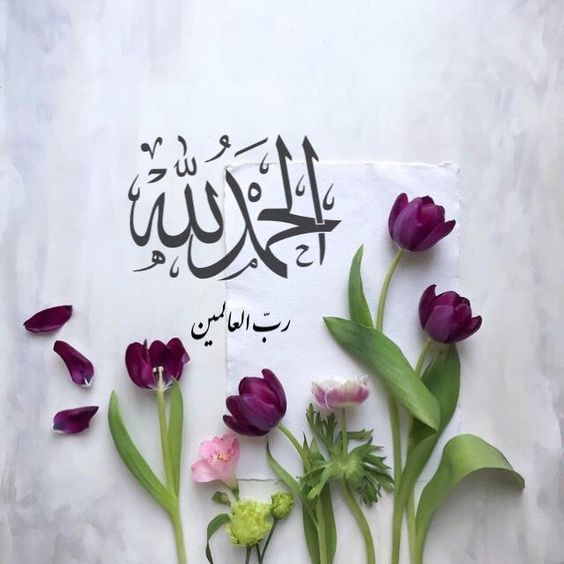 الحَمْدُ لِلّٰهِ
ربّ العالمين